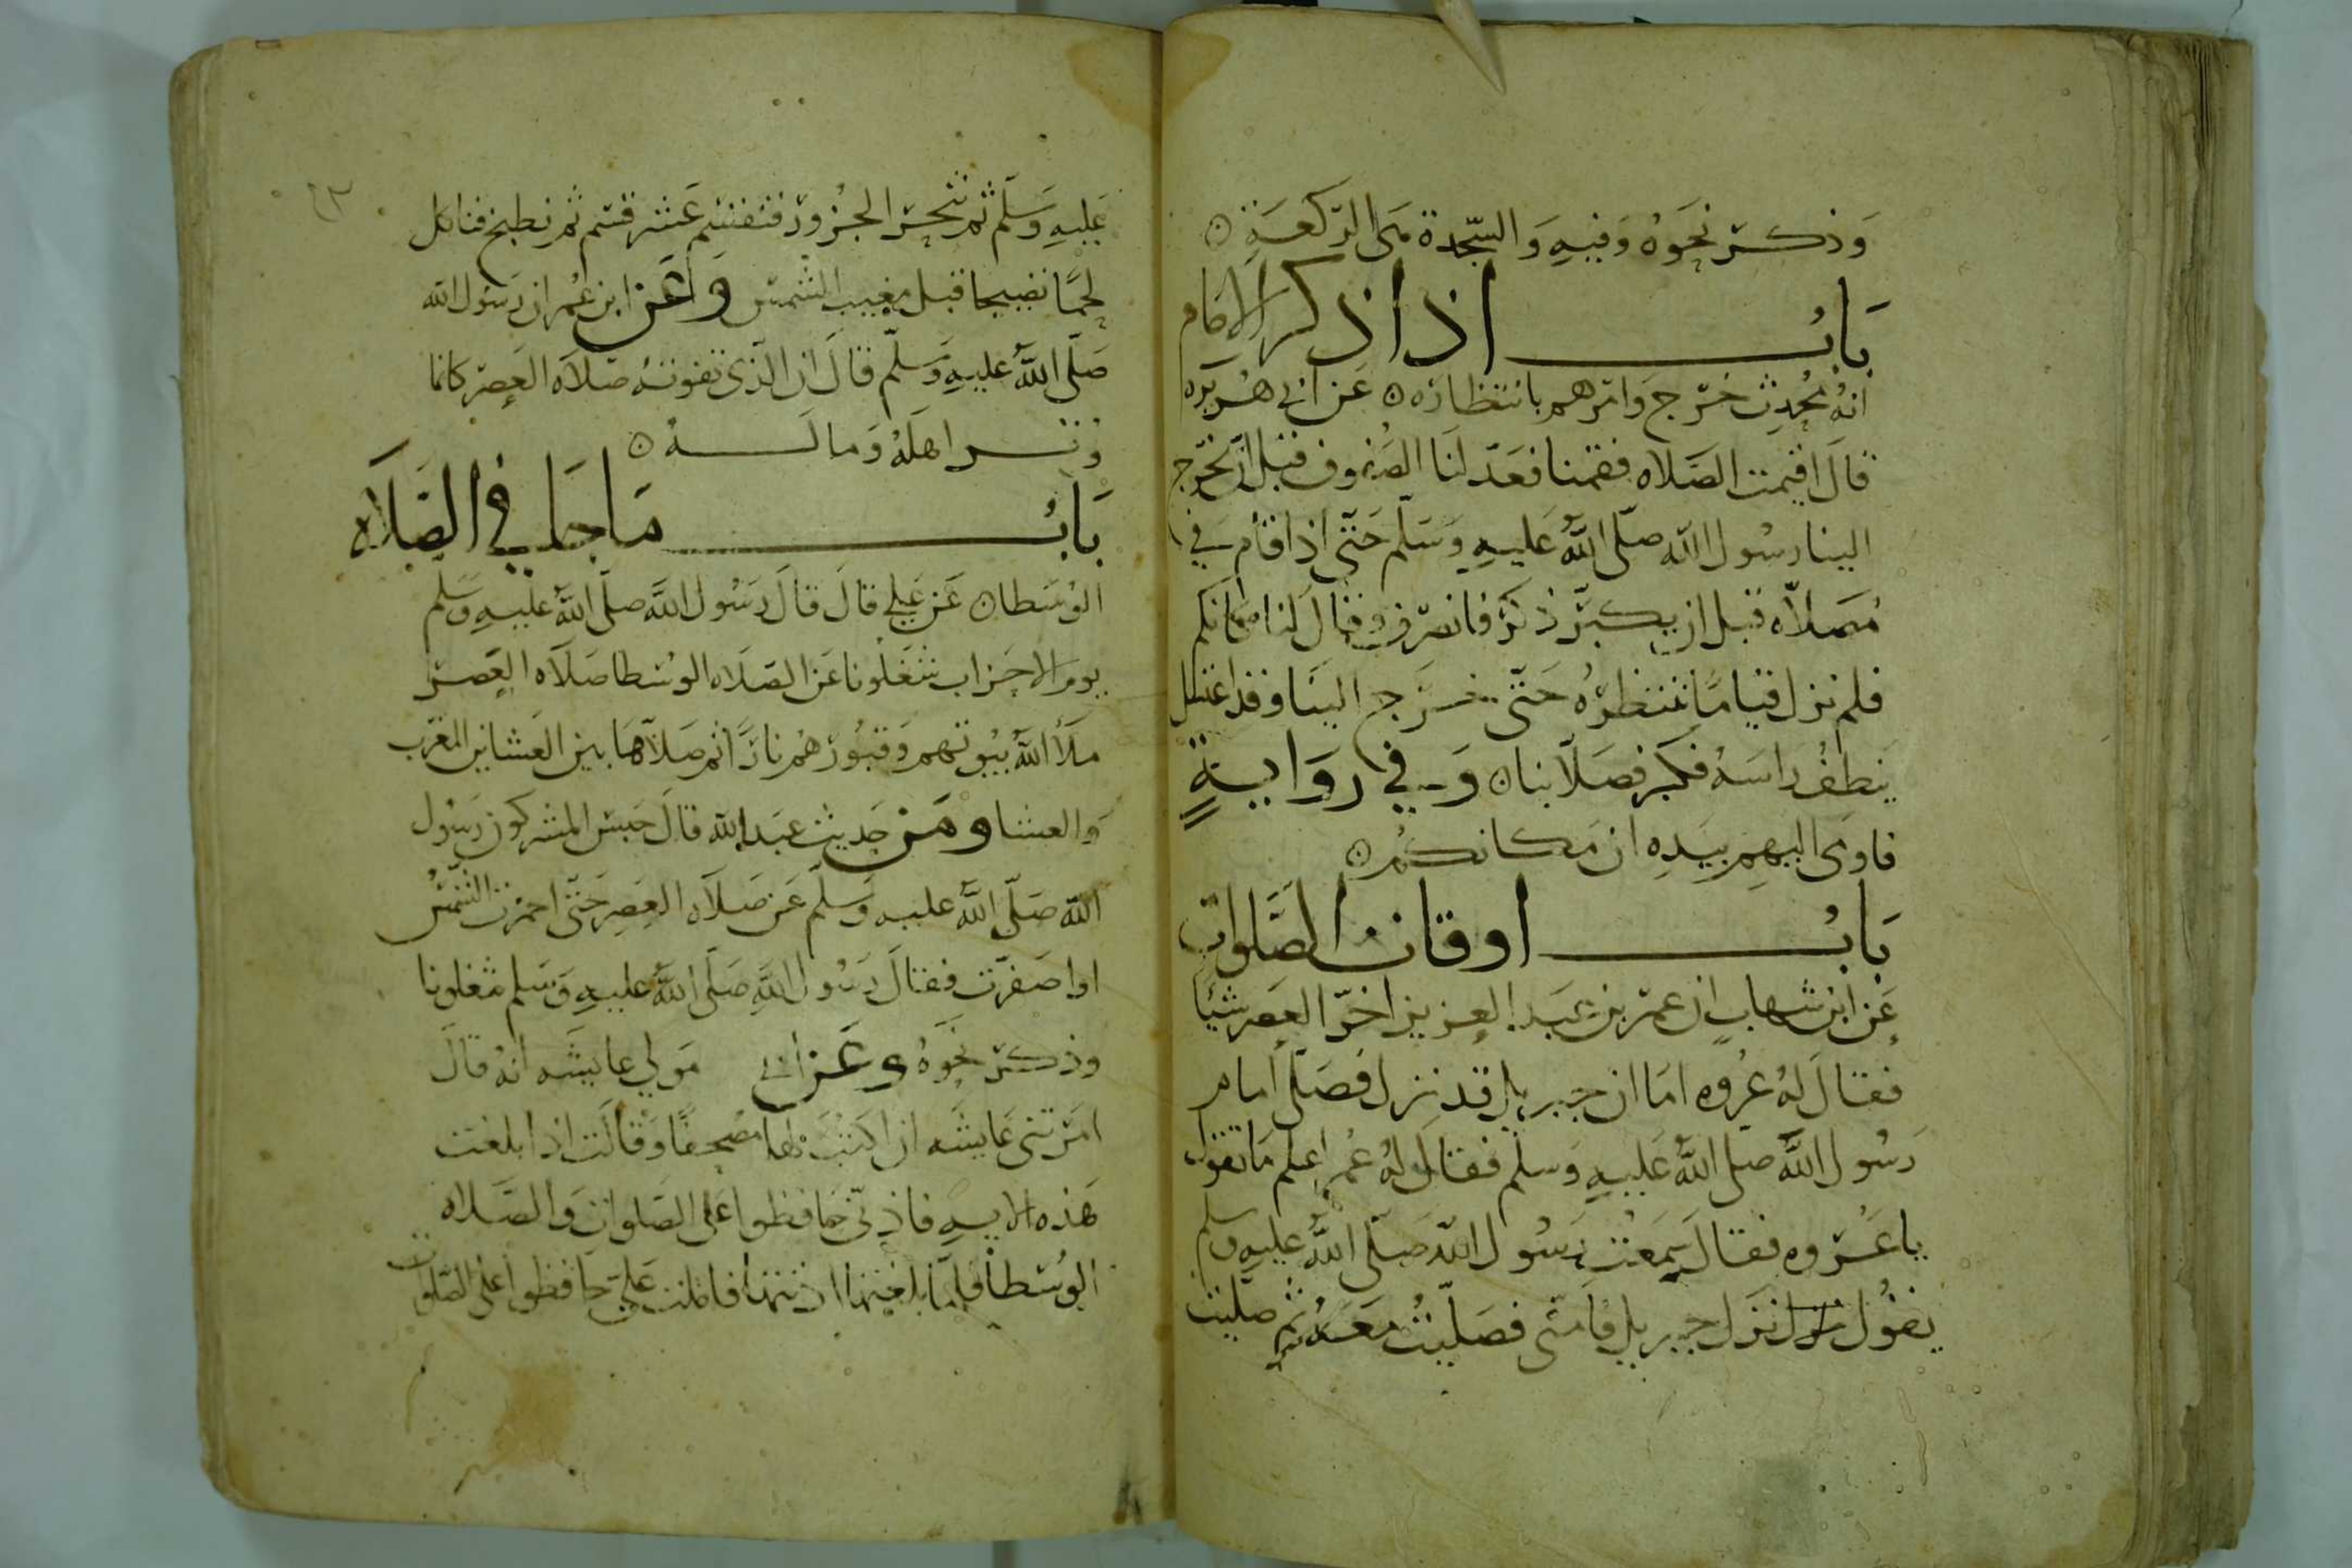 وَذكرَ نحَوهُ وَفيهِ وَالسّجدة هَى الرّكعَةِ ن
بَابُ اذا ذكر الامام
انهُ مُحدِث خرَج وَامرَهم بانتظارَه ن عَن ابى هُريره
قالَ اقيمت الصَلاه فقمنا فعَدّلنَا الصُفوف قبل ان يخرَج
الينا رسُول الله صلّى اللهُ عَليهِ وَسَلّم حَتّى اذا قام في
مُصَلاّه قبل ان يكبّرَ ذكرَ فانصرَف وقالَ لنا مكانكم
فلم نزل قيامًا ننتظرهُ حَتّى خرَج الينَا وقد اغتسَل
ينطفُ رَاسَهُ فكبَر فصَلاّ بنا ن وَفي رِوَايةٍ
فاومَى اليهِم بيَدِه ان مَكانكمُ ن
بَابُ اوقات الصَّلوات
عَن ابن شهابٍ ان عمرَ بن عَبَد العزيز اخرّ العصرَ شيئًا
فقالَ لهُ عُروه امَا ان جبريل قد نزل فصَلّى امام
رَسُول اللهَّ صلى اللهُ عَليهِ وَسلم فقالَ لهُ عُمر اعلم مَا تقول
يا عُرَوه فقال سَمعَت رَسُول اللهّ صَلّى اللهُ عليهِ وسلم
يقوُل نزَل جبريل فامَنّى فصَلّيتُ معَهُ ثم صَلّيت
٤٣
عَليهِ وَسَلّم ثم تنحرَ الجزُور فتقسَم عَشرَ قسَم ثم نطبخ فناكل
لحمًا نضيجا قبل مغيب الشمسَ وَعَن ابن عُمر ان رَسُول الله
صَلّى اللهُ عَليهِ وَسَلّم قالَ ان الّذى تفوته صَلاَه العَصر كانما
وُترَ اهلَهُ وَمالَهُ ن
بَابُ مَا جَا في الصَلَاه
الوُسَطا ن عَن عَلي قالَ قالَ رَسُول اللهَّ صلَّى اللهُ عَليهِ وَسَلّم
يومَ الاحَزاب شَغلونا عَن الصَلَاه الوسُطا صَلاَه العَصرَ
ملأ اللهُ بيُوتهم وَقبُورَهُم نارًا ثم صَلاّهَا بين العَشاين المغرَب
وَالعشا وَمَن حَديث عبَد الله قالَ حَبسَ المشركون رَسُول
اللهّ صَلّى اللهُ عليه وَسَلّم عَن صَلاَه العَصِر حَتّى احمرَت الشمَّسُ
او اصَفرّت فقالَ رَسُول اللهَّ صَلّى اللهُ عليهِ وَسَلم شغلونا
وذكرَ نحَوَهُ وَعَن ابى مَولي عايشَه انهُ قالَ
امَرَتنى عَايشَه ان اكتبَ لهَا مصحفًا وَقالَت اذا بلغت
هَذه الايهِ فاذِنّى حَافظوا عَلى الصَلوات وَالصَّلاه
الوُسَطا فلمَّا بلغتها اذنتها فاملت عَليّ حَافظوا عَلى الصَلوات